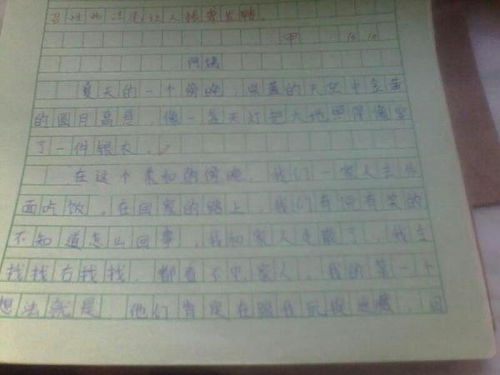 甲
夏天的一个傍晚，蔚蓝的天空中金黄
的圆月高悬，像一盏天灯把大地照得像穿
了一件银衣。
在这个美如的傍晚，我们一家人去外
面吃饭，在回家的路上，我们有说有笑的
不知道怎么回事，我和家人走散了，我左
找找右找找，都看不见家人，我的第一个
想法就是 他们肯定在跟我玩捉迷藏，因